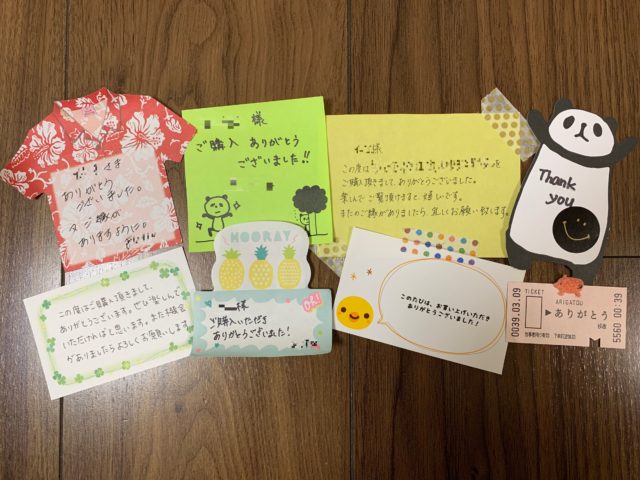 ありがとう
ございました。
様
ご購入 ありがとう
ございました!!
様
この度は
ご購入頂きまして、ありがとうございました。
楽しんでご覧頂けますと、嬉しいです。
またのご縁がありましたら、宜しくお願い致します。
Thank
you
この度はご購入頂きまして、
ありがとうございます。ぜひ楽しんで
いただければと思います。また機会
がありましたらよろしくお願いします
HOORAY
様
ご購入いただき
ありがとうございました!
このたびは、お買い上げいただき
ありがとうございました!
0939.03.09
TICKET
ARIGATOU
ありがとう
5560 00:39